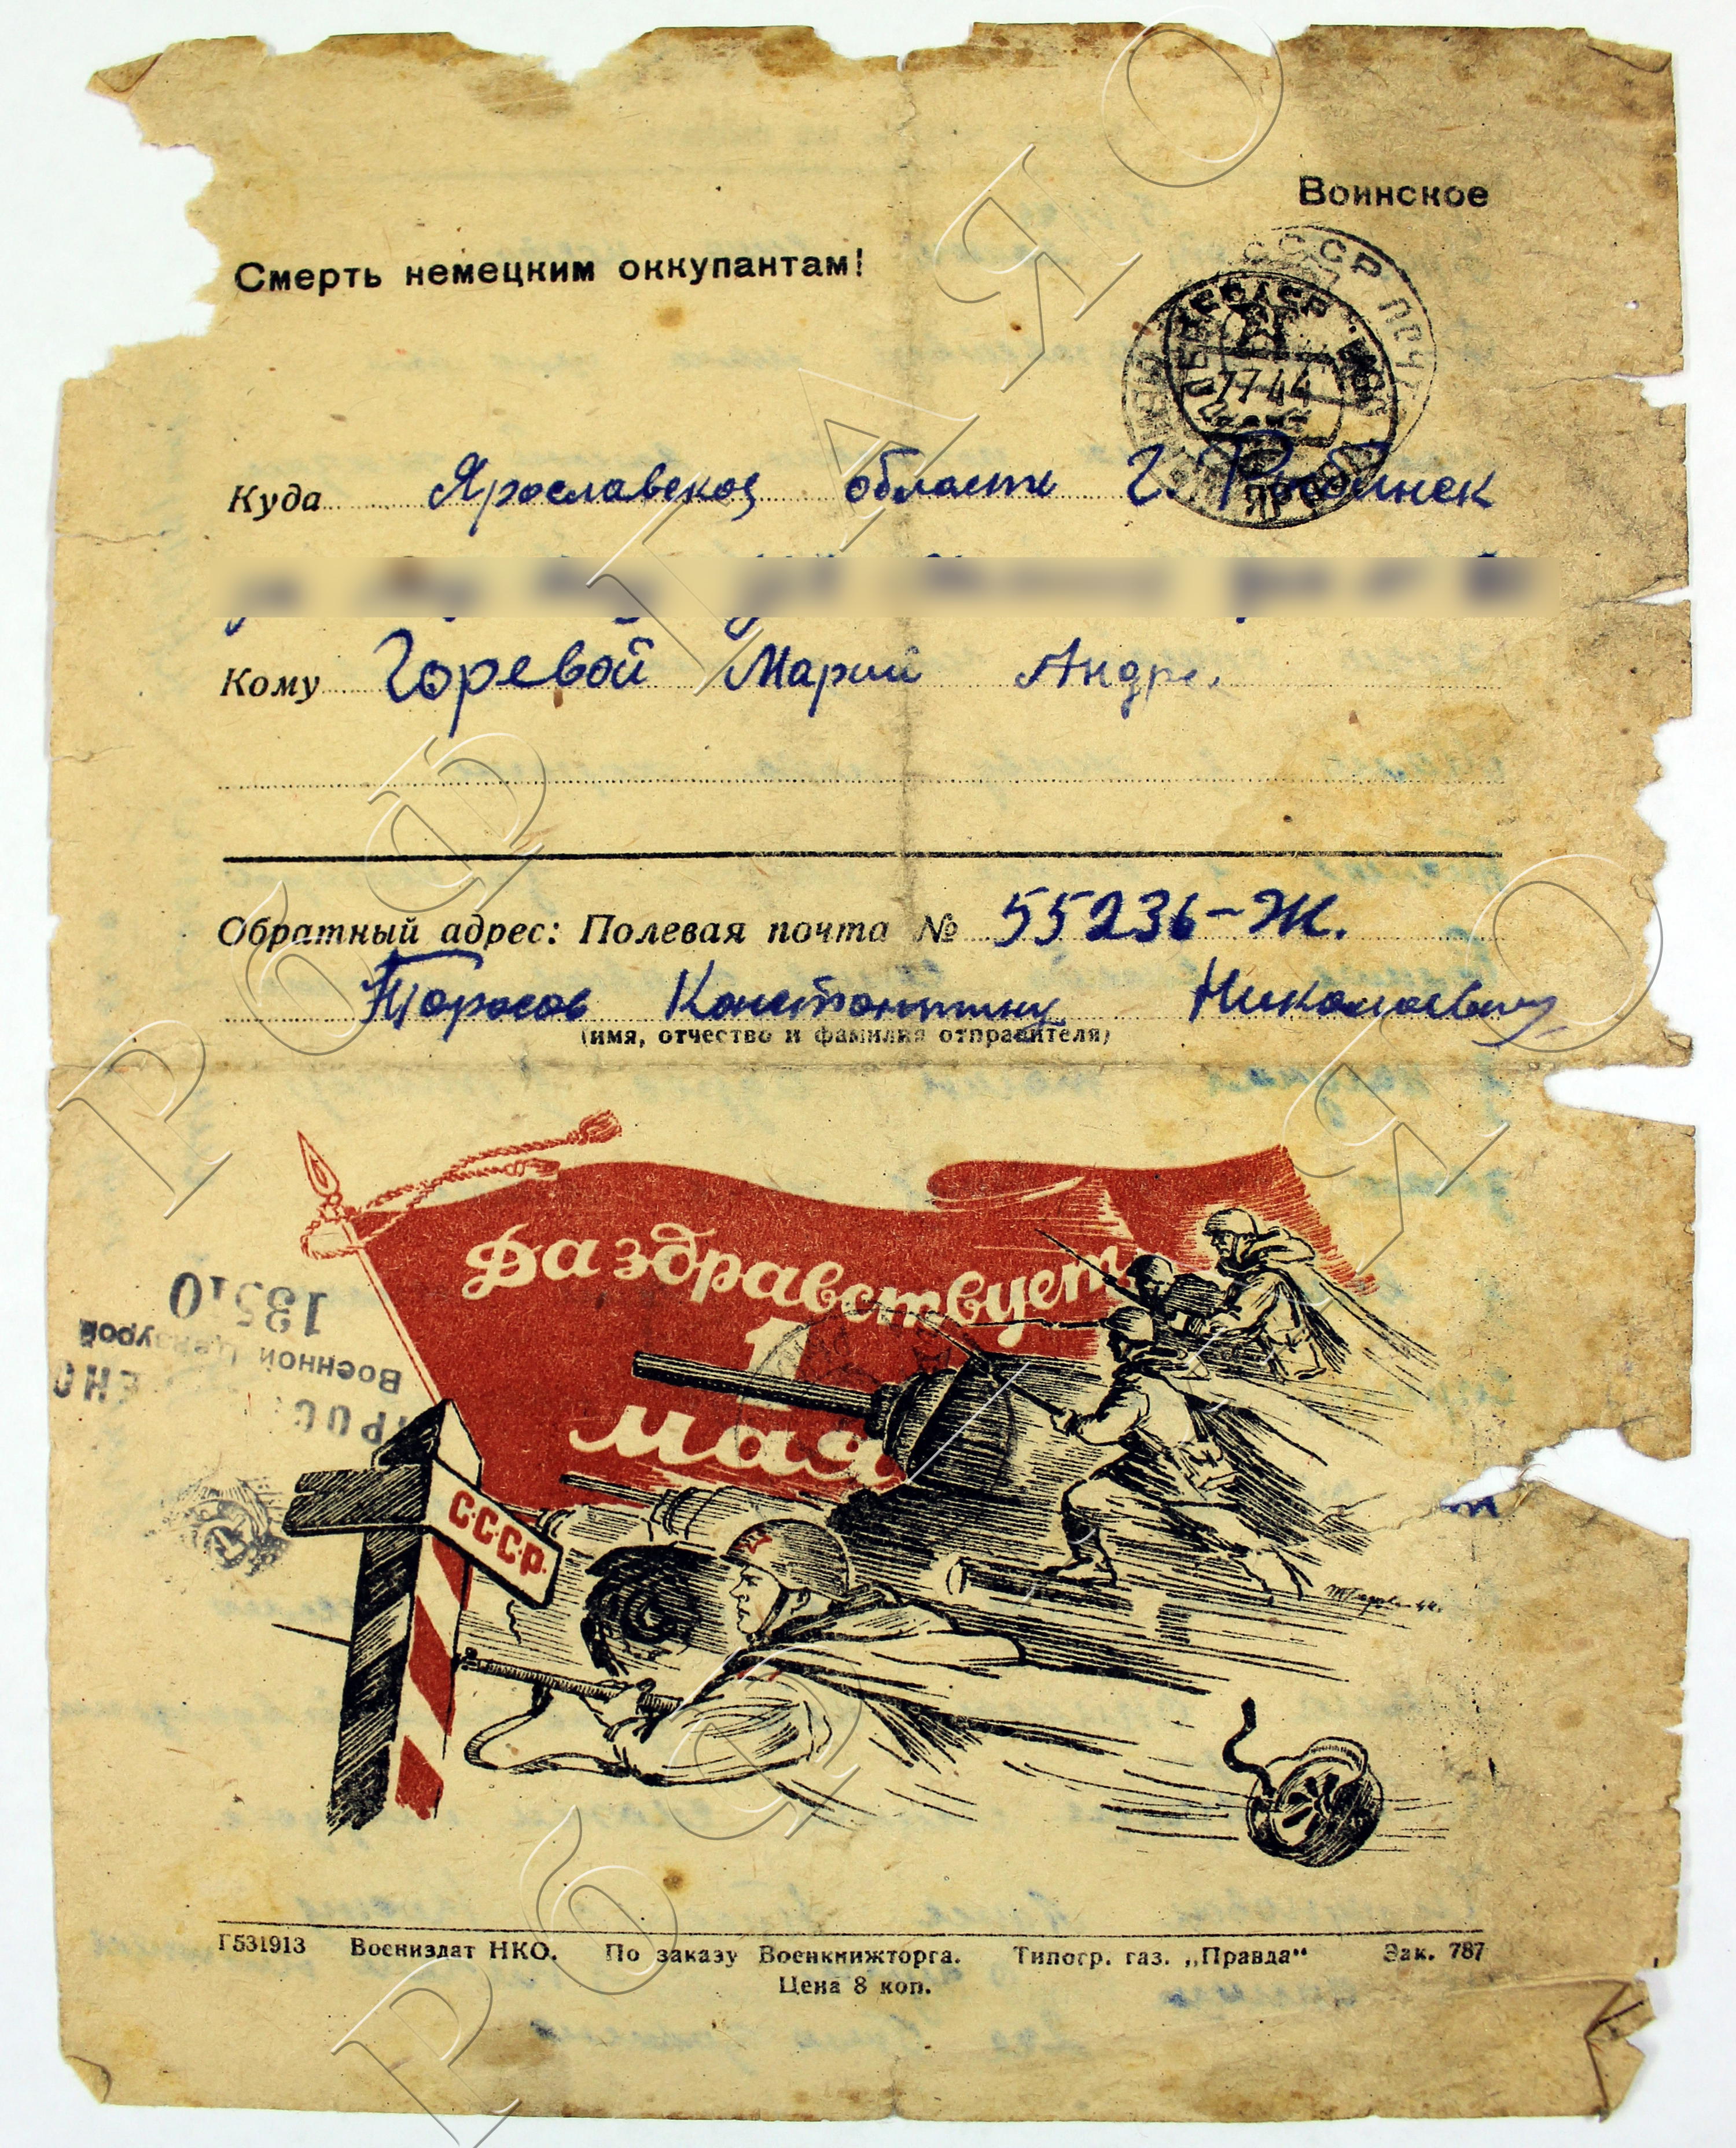 Воинское
Смерть немецким оккупантам!
СССР
7744
Куда Ярославской области г. Рыбинск
Кому Горевой Марии Андре
Обратный адрес: Полевая почта № 55236-Ж.
Тарасов Константину Николаевичу
(имя, отчество и фамилия отправителя)
Да здравствует
1
мая
13510
Военной Цензурой
С.С.С.Р.
Г531913 Воениздат НКО. По заказу Военкнижторга. Типогр. газ. „Правда“ Зак. 787
Цена 8 коп.